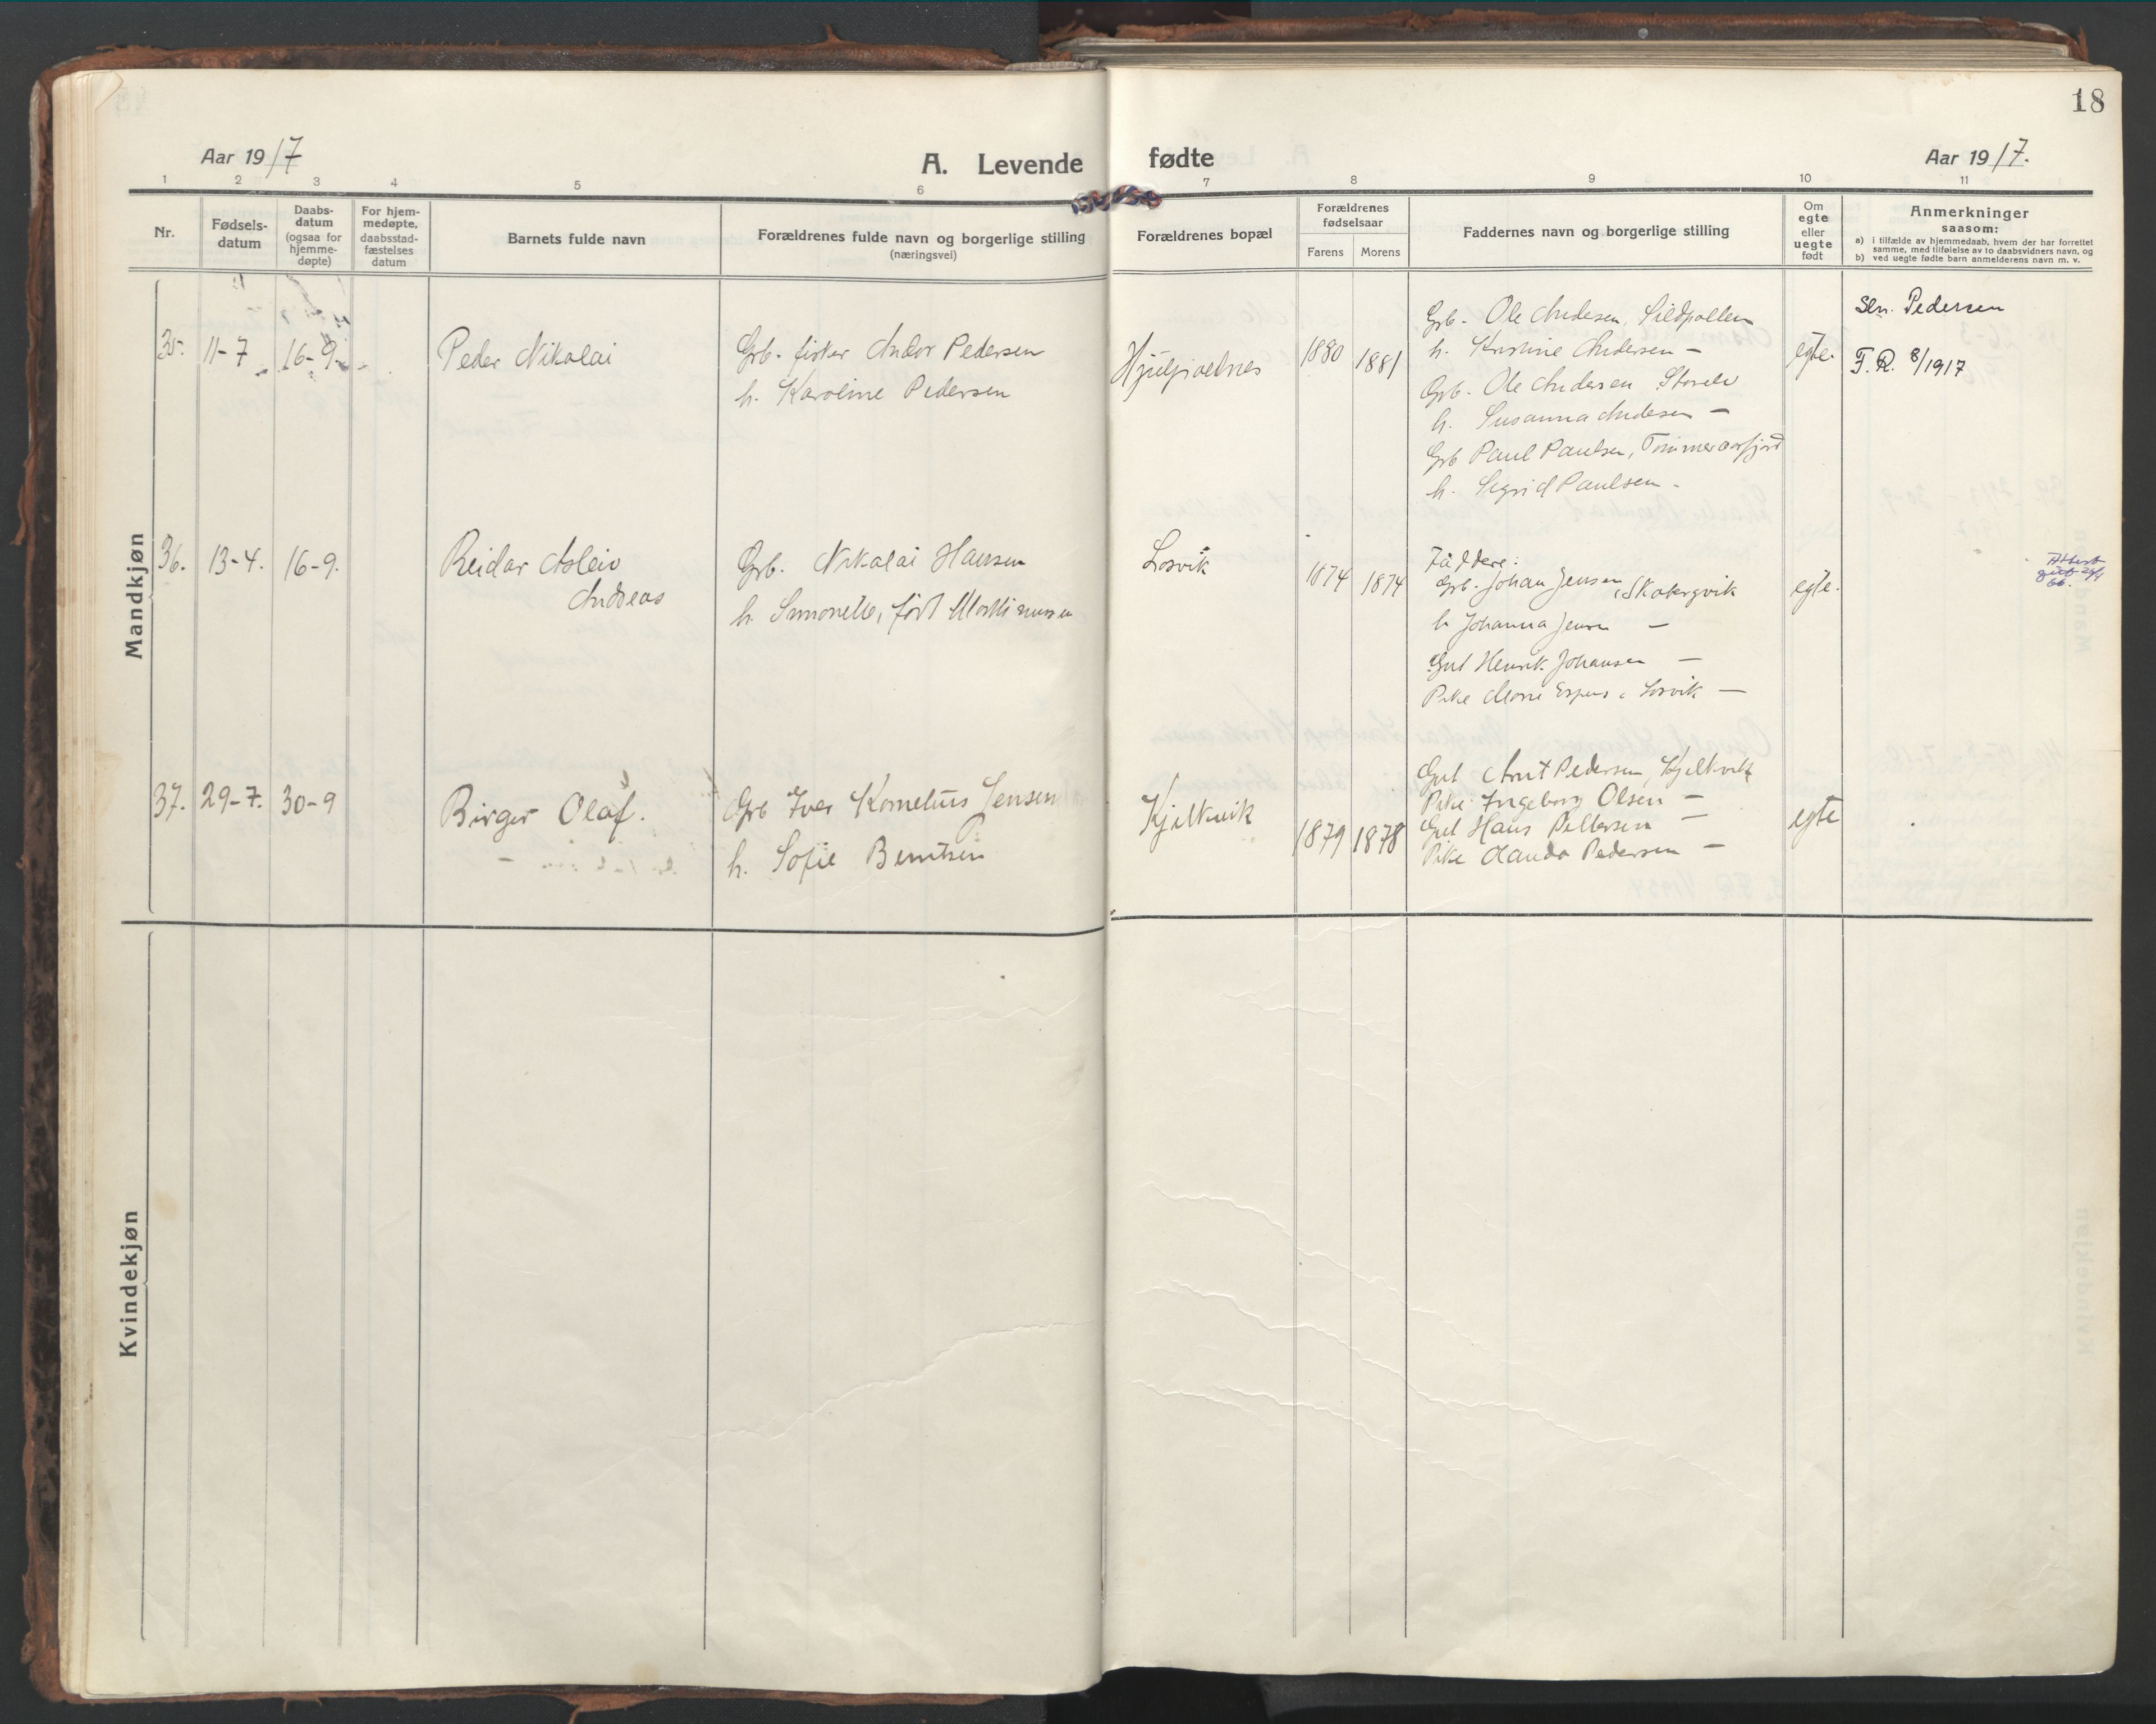 18
Aar 1917
A. Levende fødte
Aar 1917.
1 2 3 4 5 6 7 8 9 10 11
Nr.
Fødsels-
datum
Daabs-
datum
(ogsaa for
hjemme-
døpte)
For hjem-
medøpte,
daabsstad-
fæstelses
datum
Barnets fulde navn
Forældrenes fulde navn og borgerlige stilling
(næringsvei)
Forældrenes bopæl
Forældrenes
fødselsaar
Farens Morens
Faddernes navn og borgerlige stilling
Om
egte
eller
uegte
født
Anmerkninger
saasom:
a) i tilfælde av hjemmedaab, hvem der har forrettet
samme, med tilføielse av to daabsvidners navn, og
b) ved uegte fødte barn anmelderens navn m. v.
Mandkjøn
35. 11-7 16-9.
Peder Nikolai
Grb. fisker Andor Pedersen
h. Karoline Pedersen
1880 1881
Grb. Ole Andersen, Sildpollen
h. Kristine Andersen —
Grb. Ole Andersen Storelv
h. Susanna Andersen —
Grb Paul Paulsen,
h. Sigrid Paulsen -
egte.
Sln. Pedersen
F. R. 8/1917
36. 13-4. 16-9.
Reidar Asleiv
Andreas
Grb. Nikolai Hansen
h. Simonette, født
Losvik
1874 1874
Faddere:
Grb. Johan Jensen,
h Johanna Jensen —
Gut Henrik Johansen —
Pike Losvik —
egte.
37. 29-7. 30-9
Birger Olaf.
Grb Iver Kornelius Jensen
h. Sofie Berntsen
Kjelkvik
1879 1878
Gut Arnt Pedersen, Kjelkvik
Pike Ingeborg Olsen —
Gut Hans Pettersen —
Pike Pedersen —
egte
Kvindekjøn